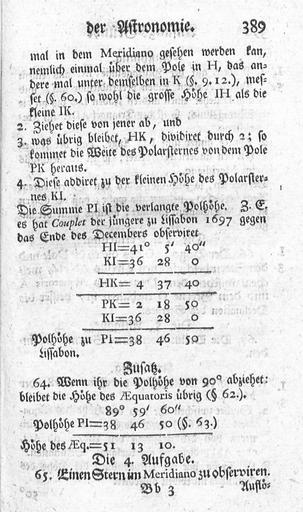 der Astronomie. 389
mal in dem Meridiano gesehen werden kan,
nemlich einmal über dem Pole in H, das an-
dere mal unter demselben in K (§. 9. 12.), mes-
set (§. 60.) so wohl die grosse Höhe IH als die
kleine IK.
2. Ziehet diese von jener ab, und
3. was übrig bleibet, HK, dividiret durch 2; so
kommet die Weite des Polarsternes von dem Pole
PK heraus.
4. Diese addiret zu der kleinen Höhe des Polarster-
nes KI.
Die Summe PI ist die verlangte Polhöhe. Z. E.
es hat Couplet der jüngere zu Lissabon 1697 gegen
das Ende des Decembers observiret
HI=41° 5' 40"
KI=36 28 0
HK= 4 37 40
PK= 2 18 50
KI=36 28 0
Polhöhe zu PI=38 46 50
Lissabon.
Zusatz.
64. Wenn ihr die Polhöhe von 90° abziehet:
bleibet die Höhe des Æquatoris übrig (§ 62.).
89° 59' 60"
Polhöhe PI=38 46 50 (§. 63.)
Höhe des Æq.=51 13 10.
Die 4. Aufgabe.
65. Einen Stern im Meridiano zu observiren.
Bb 3 Auflö-